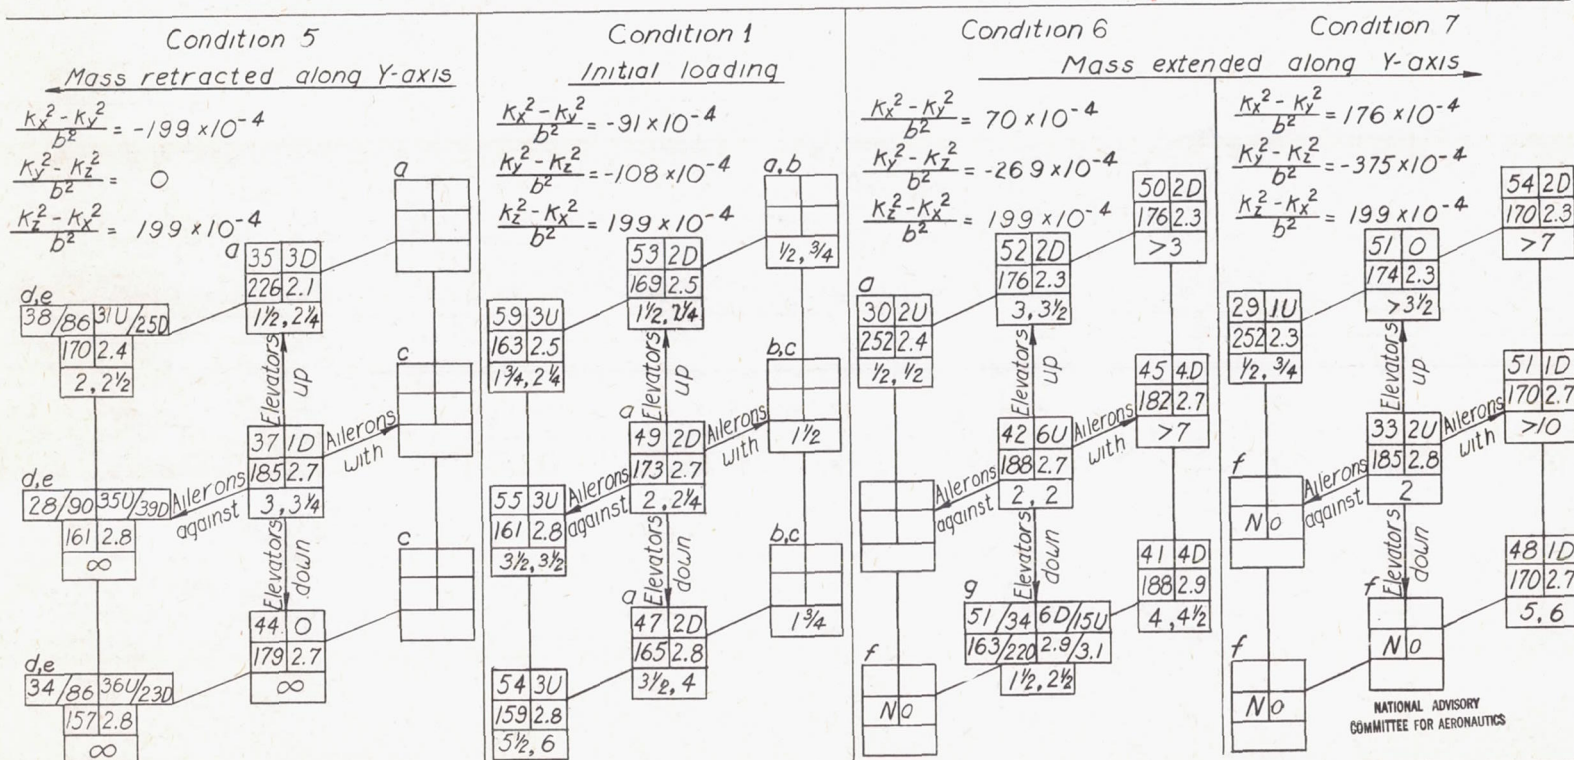 Condition 5
Mass retracted along Y-axis
(Kx² - Ky²)/b² = -199 × 10⁻⁴
(Ky² - Kz²)/b² = 0
(Kz² - Kx²)/b² = 199 × 10⁻⁴
a
a
35 3D
226 2.1
1½, 2¼
d,e
38/86 31U/25D
170 2.4
2, 2½
Elevators up
c
37 1D
185 2.7
3, 3¼
Ailerons with
Ailerons against
d,e
28/90 35U/39D
161 2.8
∞
Elevators down
c
44 0
179 2.7
∞
d,e
34/86 36U/23D
157 2.8
∞
Condition 1
Initial loading
(Kx² - Ky²)/b² = -91 × 10⁻⁴
(Ky² - Kz²)/b² = -108 × 10⁻⁴
(Kz² - Kx²)/b² = 199 × 10⁻⁴
a,b
½, ¾
53 2D
169 2.5
1½, 2¼
59 3U
163 2.5
1¾, 2¼
Elevators up
b,c
1½
a
49 2D
173 2.7
2, 2¼
Ailerons with
Ailerons against
55 3U
161 2.8
3½, 3½
Elevators down
b,c
1¾
a
47 2D
165 2.8
3½, 4
54 3U
159 2.8
5½, 6
Condition 6
Condition 7
Mass extended along Y-axis
(Kx² - Ky²)/b² = 70 × 10⁻⁴
(Ky² - Kz²)/b² = -269 × 10⁻⁴
(Kz² - Kx²)/b² = 199 × 10⁻⁴
50 2D
176 2.3
>3
52 2D
176 2.3
3, 3½
a
30 2U
252 2.4
½, ½
Elevators up
45 4D
182 2.7
>7
42 6U
188 2.7
2, 2
Ailerons with
Ailerons against
Elevators down
41 4D
188 2.9
4, 4½
g
51/34 6D/15U
163/220 2.9/3.1
1½, 2½
f
NO
(Kx² - Ky²)/b² = 176 × 10⁻⁴
(Ky² - Kz²)/b² = -375 × 10⁻⁴
(Kz² - Kx²)/b² = 199 × 10⁻⁴
54 2D
170 2.3
>7
51 0
174 2.3
>3½
29 1U
252 2.3
½, ¾
Elevators up
51 1D
170 2.7
>10
33 2U
185 2.8
2
Ailerons with
Ailerons against
f
NO
Elevators down
48 1D
170 2.7
5, 6
f
NO
f
NO
NATIONAL ADVISORY
COMMITTEE FOR AERONAUTICS